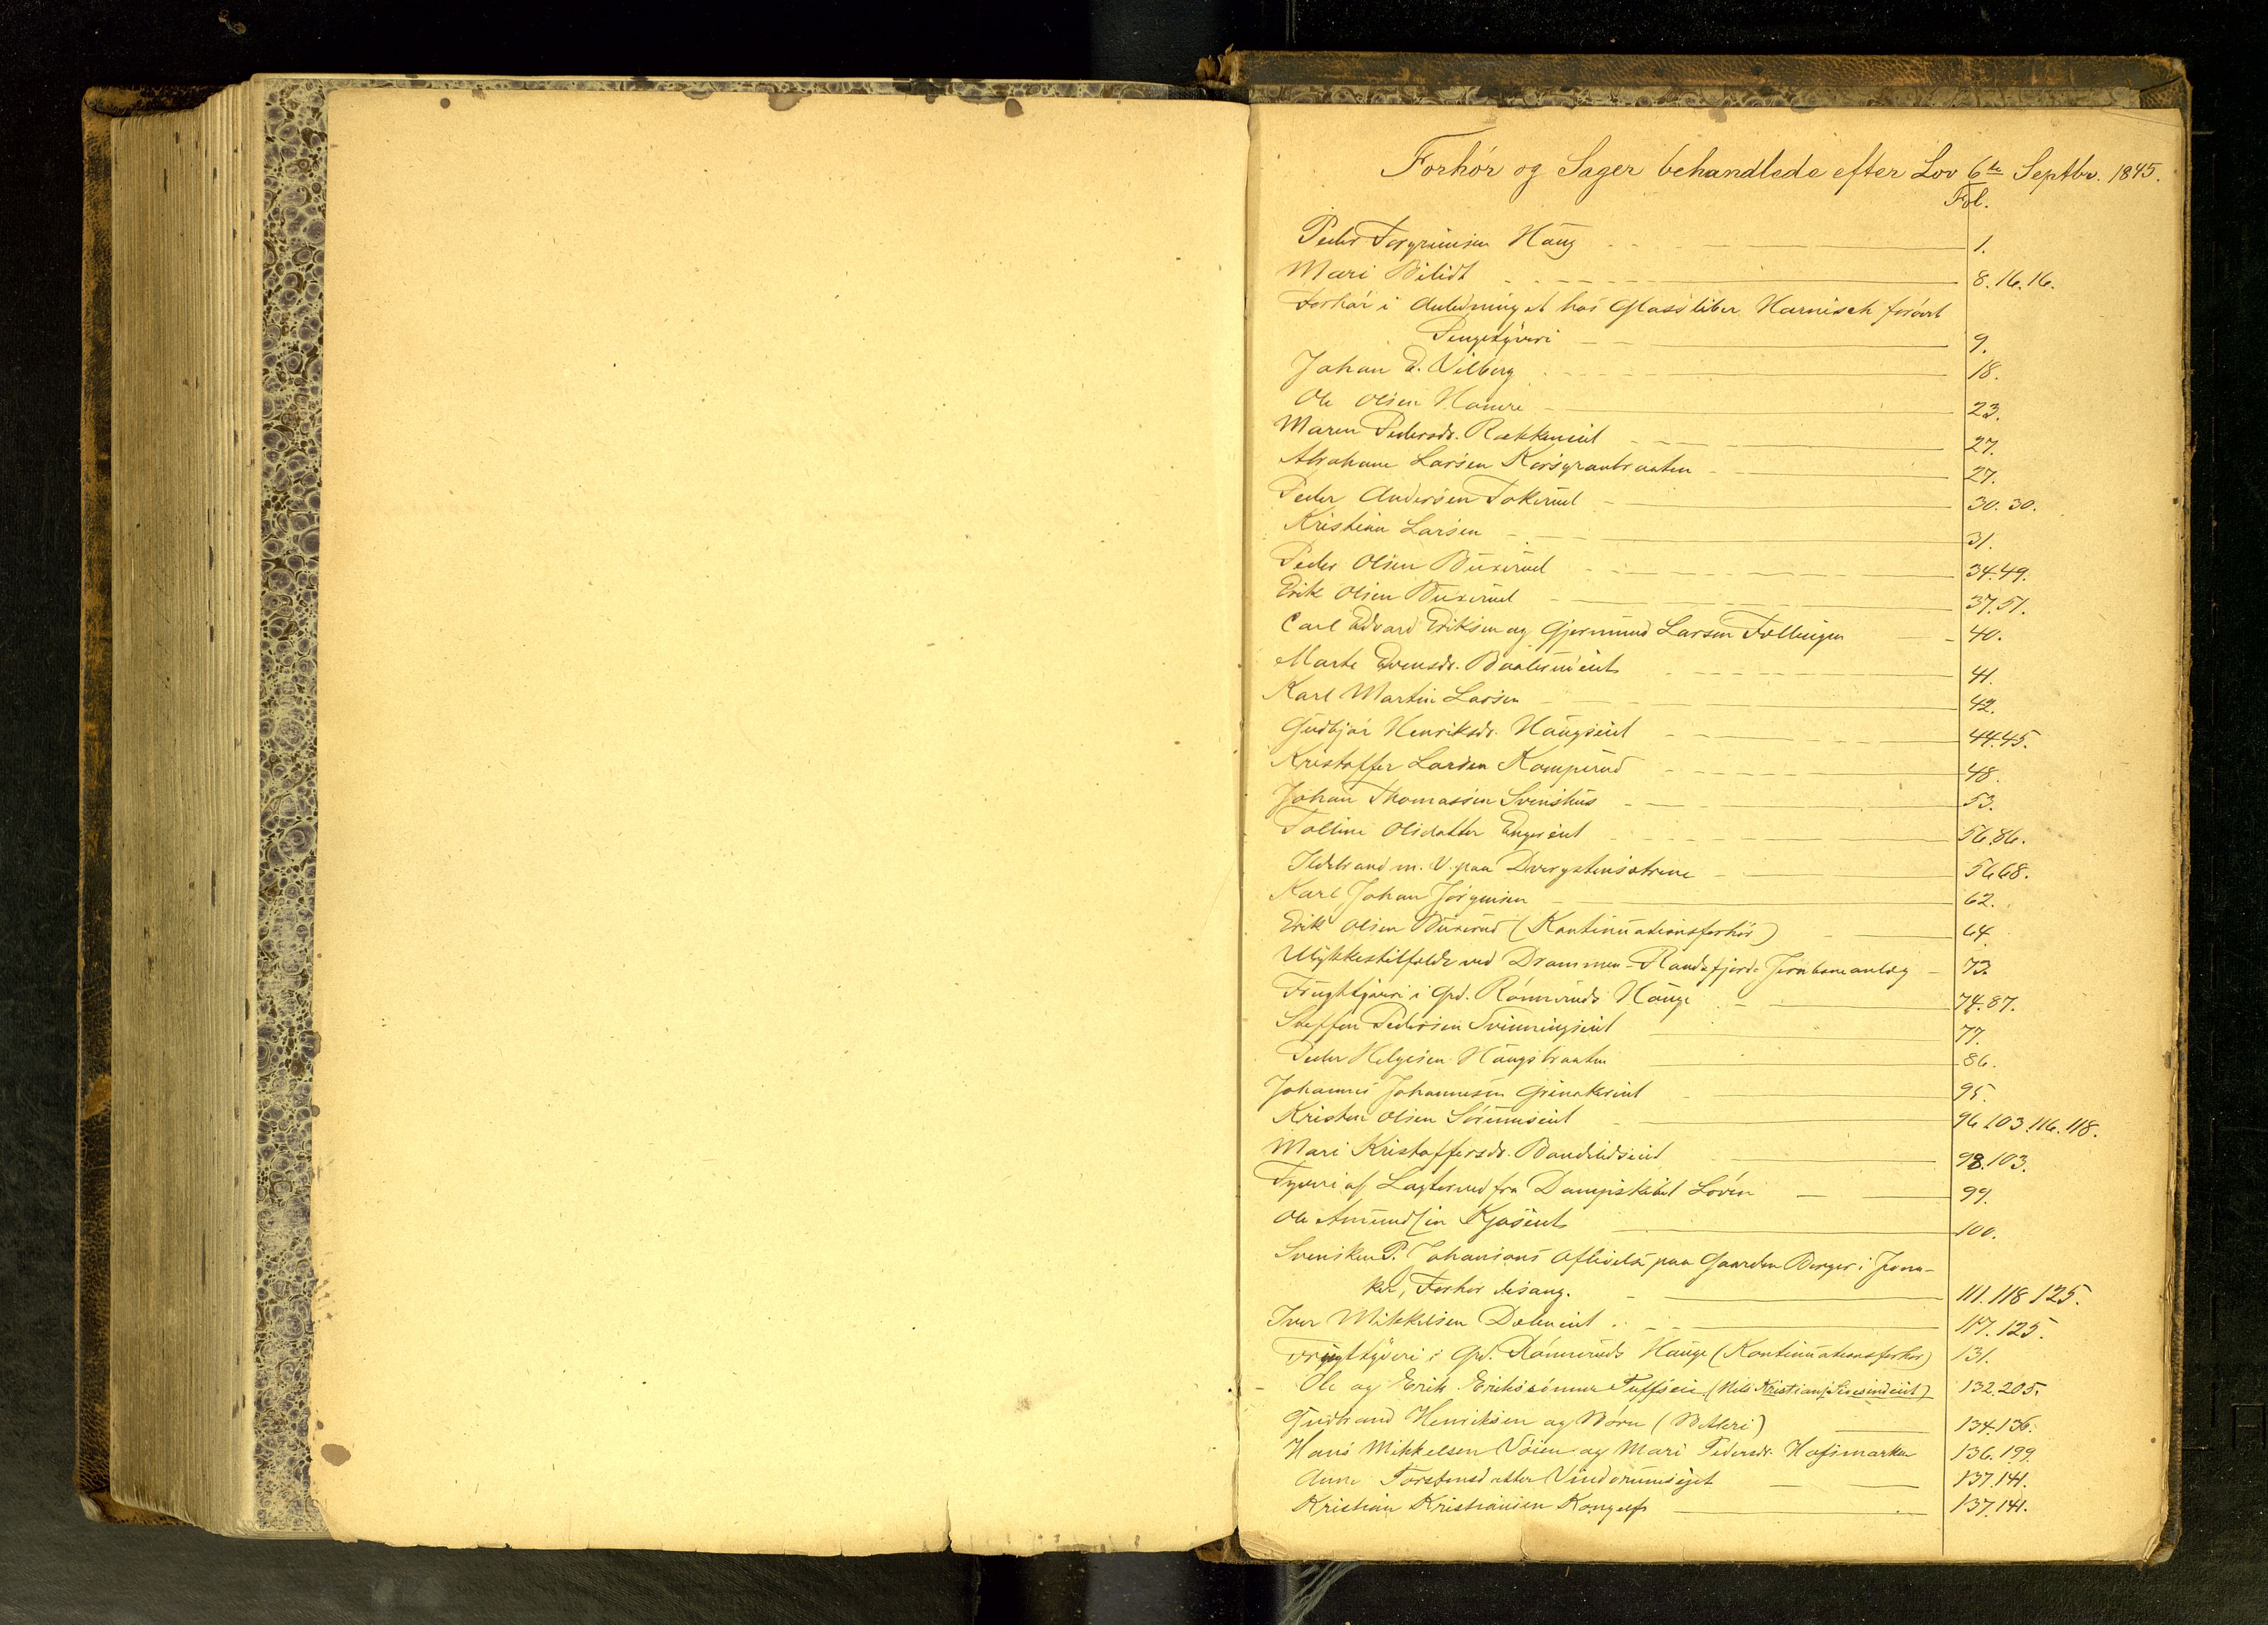 Forhör og Sager behandlede efter Lov 6te Septbr. 1845.
Fol.
Peder Torgrimsen Haug 1.
Mari Bilidt 8. 16. 16.
Forhör i Anledning et hos Glassliber Harnisch forövet
Pengetyveri 9.
Johan E. Vilberg 18.
Ole Olsen Hamre 23.
Maren Pedersdr. Rækkeneiet 27.
Abraham Larsen Korsgranbraaten 27.
Peder Andersen Tokerud 30. 30.
Kristian Larsen 31.
Peder Olsen Buxerud 34. 49.
Erik Olsen Buxerud 37. 51.
Carl Edvard Eriksen og Gjermund Larsen Tollingen 40.
Marte Evensdr. 41.
Karl Martin Larsen 42.
Gudbjör Henriksdr. Haugseiet 44. 45.
Kristoffer Larsen Kamperud 48.
Johan Thomassen Svenshus 53.
Tolline Olsdatter Engereiet 56. 86.
Ildebrand m. V. paa 56. 68.
Karl Johan Jörgensen 62.
Erik Olsen Buxerud (Kontinuationsforhör) 64.
Ulykkestilfælde ved Drammen-Randsfjords Jernbaneanlæg 73.
Frugttyveri i Grd. Rönneruds Hauge 74. 87.
Steffen Pedersen Svinningseiet 77.
Peder Helgesen Haugsbraaten 86.
Johannes Johannesen Grinakereiet 95.
Kristen Olsen Sörumseiet 96. 103. 116. 118.
Mari Kristoffersdr. 98. 103.
Tyveri af Lagterved fra Dampskibet Löven 99.
Ole Amundsen Kjoseiet 100.
Svensken P. Johansons Aflivelse paa Gaarden Berger i Jevna-
ker, Forhör desang. 111. 118. 125.
Iver Mikkelsen Daleneiet 117. 125.
Frugttyveri i Grd. Rönneruds Hauge (Kontinuationsforhör) 131.
Ole og Erik Erikssönner (Nils Kristian) 132. 205.
Gudbrand Henriksen og Börn (Betleri) 134. 136.
Hans Mikkelsen Vöien og Mari Pedersdr. Hofsmarken 136. 199.
Anne Torstensdatter 137. 141.
Kristian Kristiansen Kongelf 137. 141.